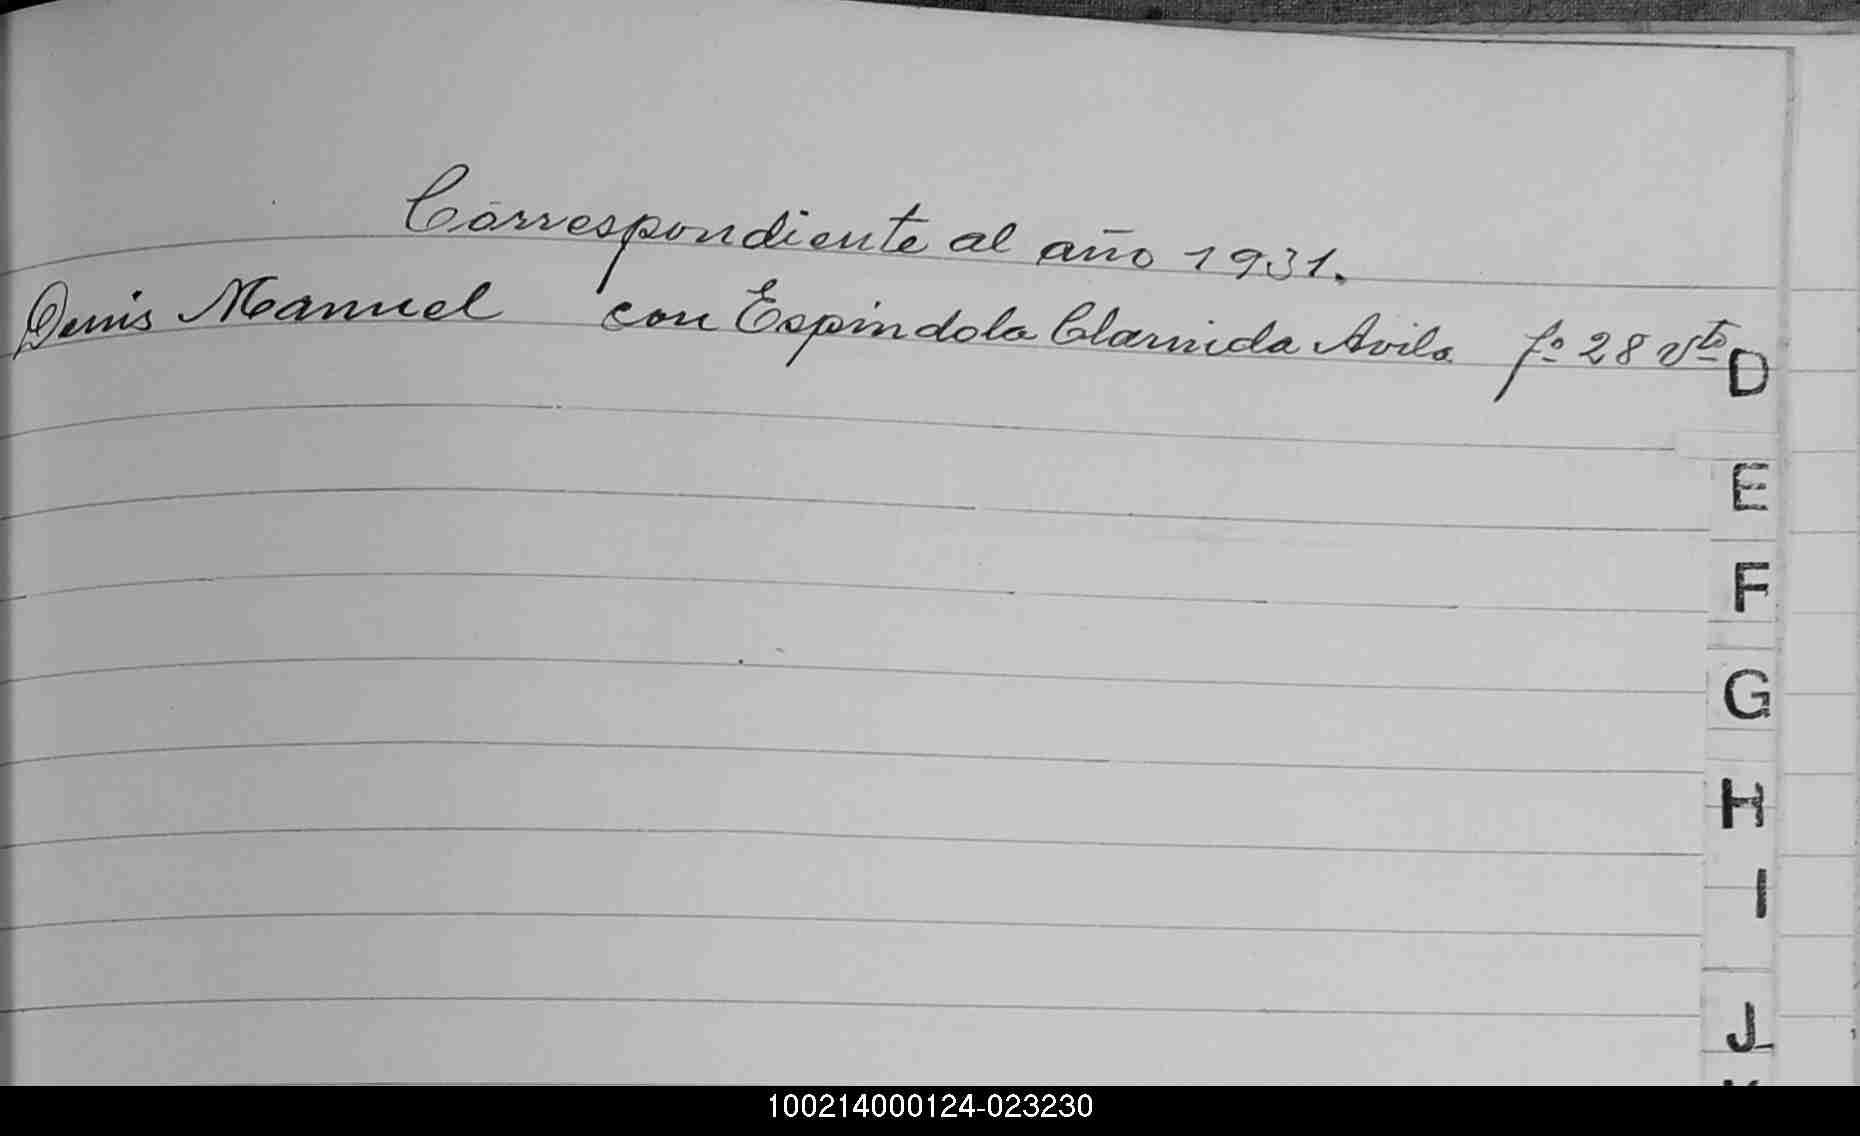 Correspondiente al año 1931.
Denis Manuel con Espindola Clarnida Avila fº 28 vto
D
E
F
G
H
I
J
100214000124-023230